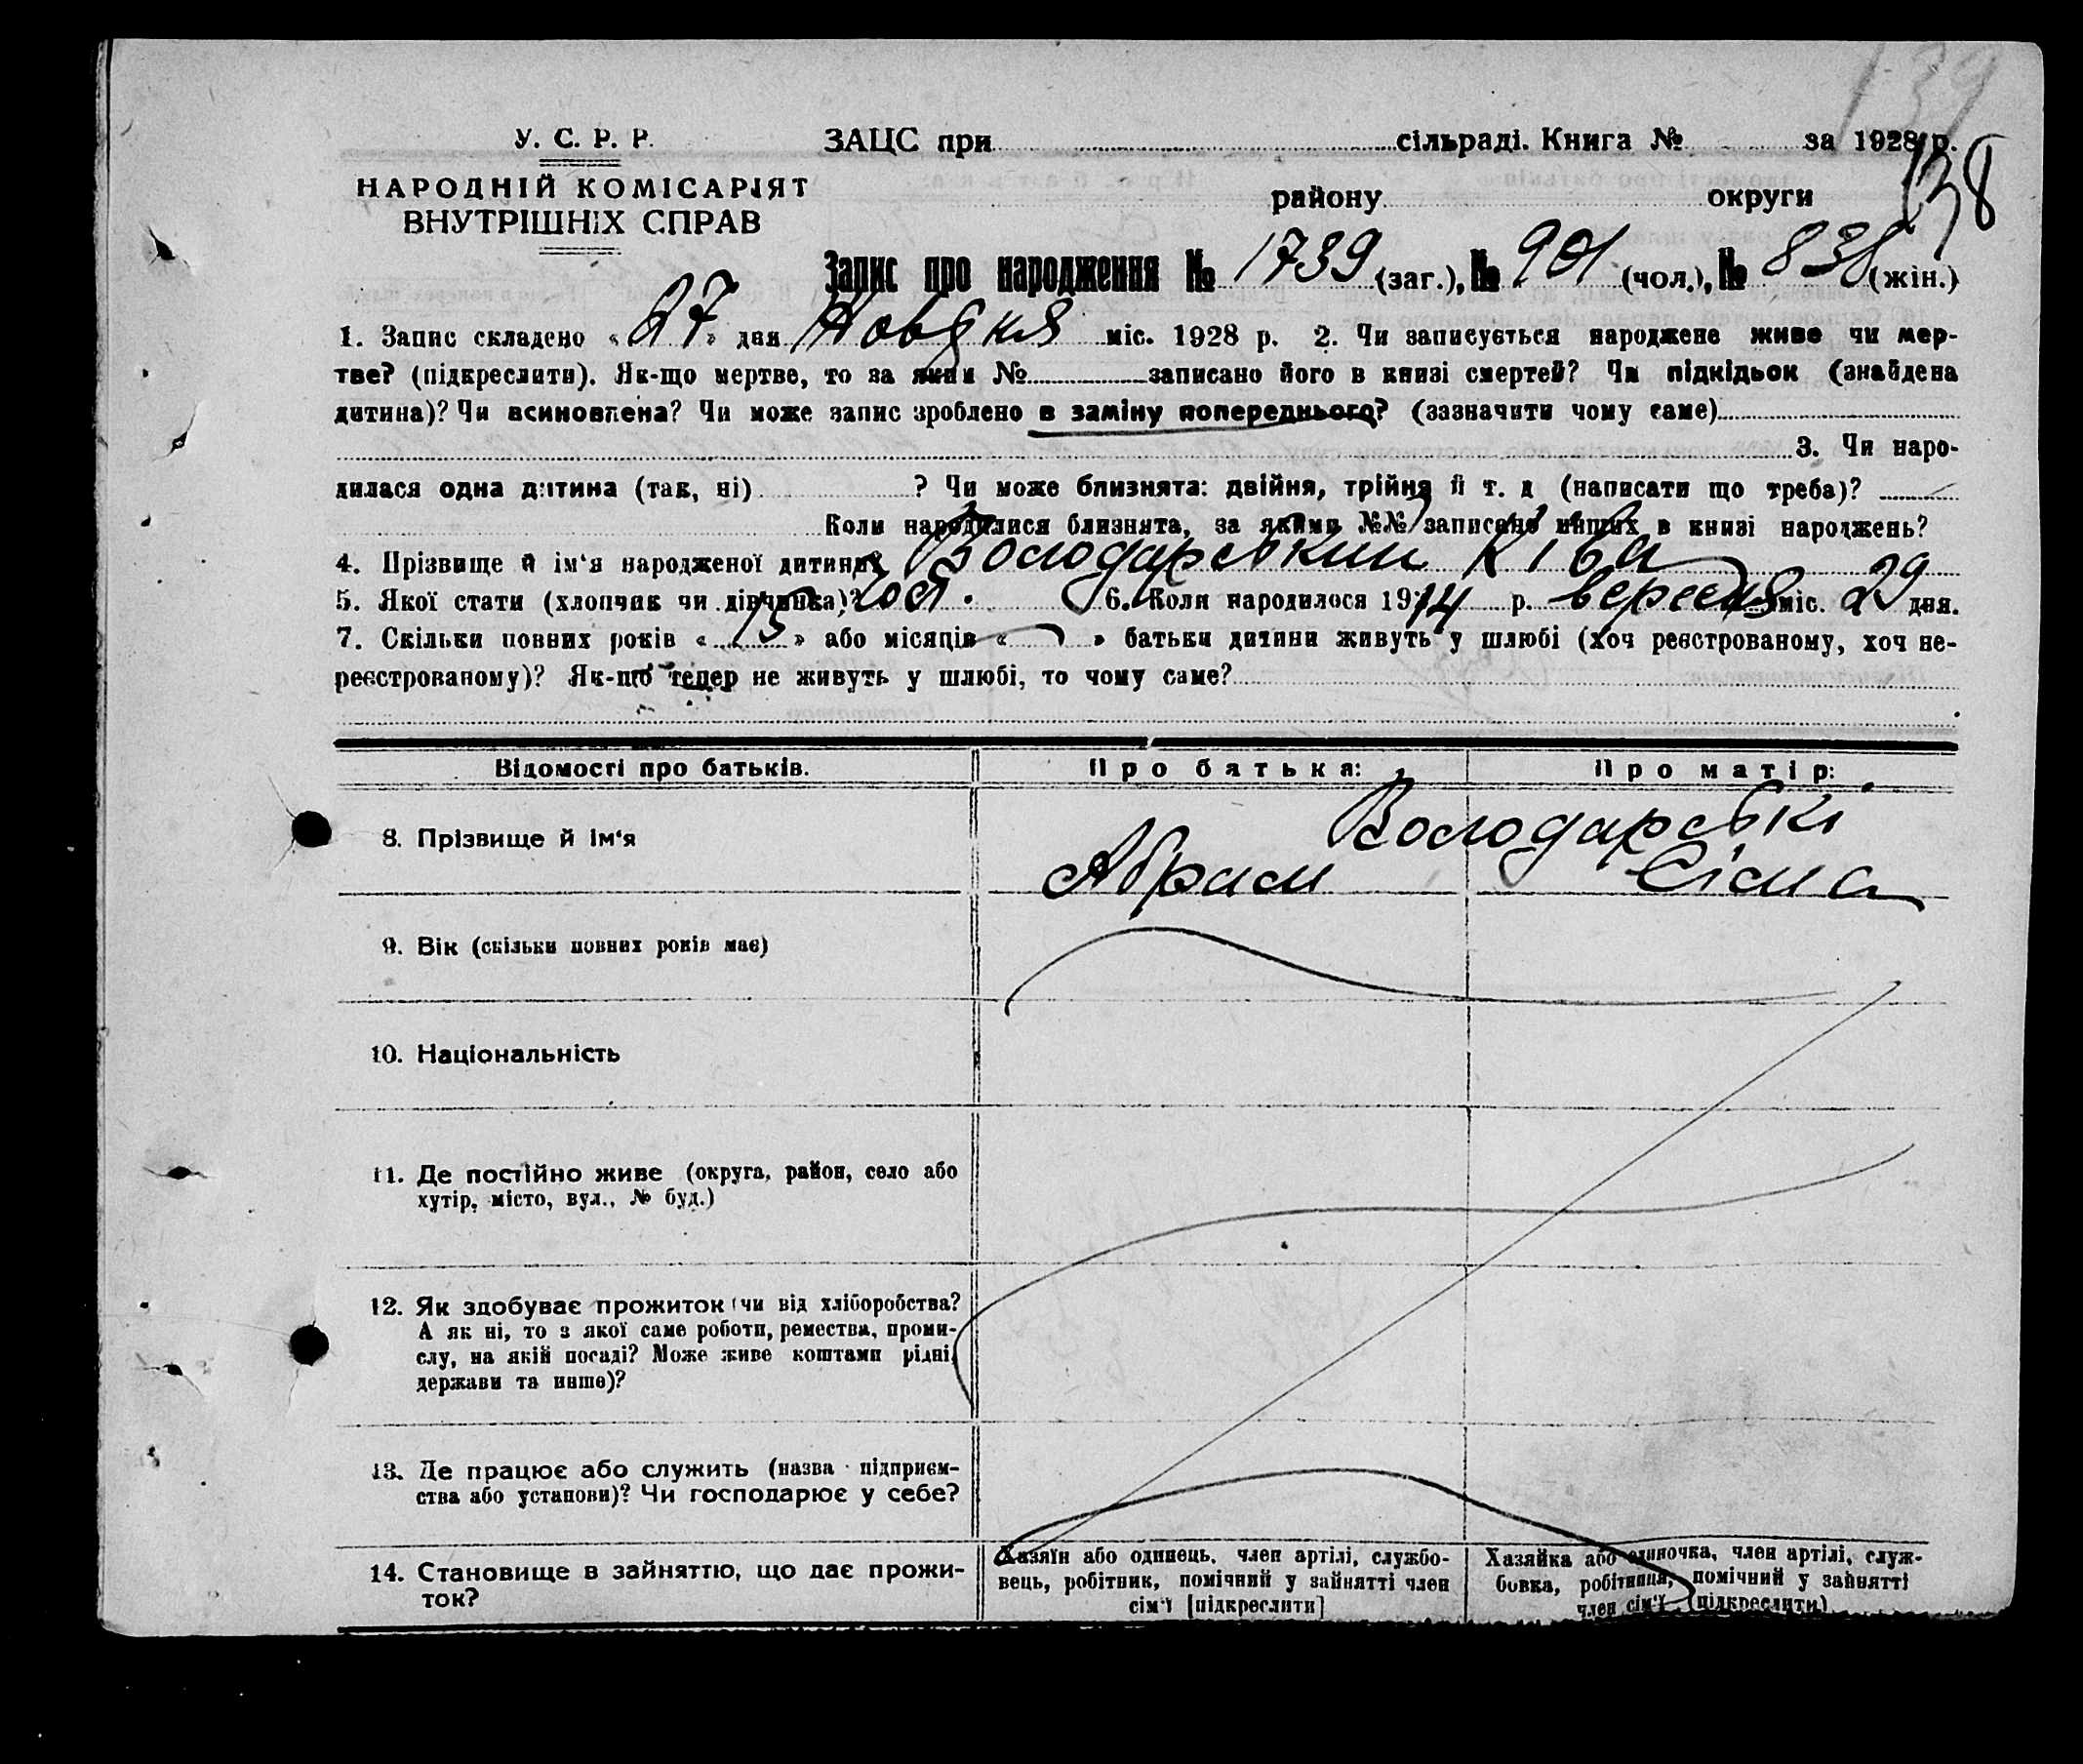 139
У. С. Р. Р. ЗАЦС при сільраді. Книга № за 1928 р.
138
НАРОДНІЙ КОМІСАРІЯТ району округи
ВНУТРІШНІХ СПРАВ
Запис про народження № 1739 (заг.), № 901 (чол.), № 838 (жін.)
1. Запис складено « 27 » дня Жовтня міс. 1928 р. 2. Чи записується народжене живе чи мер-
тве? (підкреслити). Як-що мертве, то за яким № записано його в книзі смертей? Чи підкідьок (знайдена
дитина)? Чи всиновлена? Чи може запис зроблено в заміну попереднього? (зазначити чому саме)
3. Чи наро-
дилася одна дитина (так, ні) ? Чи може близнята: двійня, трійня й т. д (написати що треба)?
Коли народилися близнята, за якими №№ записано инших в книзі народжень?
4. Прізвище й ім'я народженої дитини? Володарський Ківа
5. Якої стати (хлопчик чи дівчинка)? 6. Коли народилося 1914 р. вересня міс. 29 дня.
7. Скільки повних років « 15 » або місяців « » батьки дитини живуть у шлюбі (хоч реєстрованому, хоч не-
реєстрованому)? Як-що тепер не живуть у шлюбі, то чому саме?
Відомості про батьків. Про батька: Про матір:
Володарські
8. Прізвище й ім'я Абрам Сіма
9. Вік (скільки повних років має)
10. Національність
11. Де постійно живе (округа, район, село або
хутір, місто, вул., № буд.)
12. Як здобуває прожиток (чи від хліборобства?
А як ні, то з якої саме роботи, ремества, проми-
слу, на якій посаді? Може живе коштами рідні,
держави та инше)?
13. Де працює або служить (назва підприєм-
ства або установи)? Чи господарює у себе?
14. Становище в зайняттю, що дає прожи-
ток?
Хазяїн або одинець, член артілі, службо-
вець, робітник, помічний у зайнятті член
сім'ї [підкреслити]
Хазяйка або одиночка, член артілі, служ-
бовка, робітниця, помічний у зайнятті
член сім'ї (підкреслити)